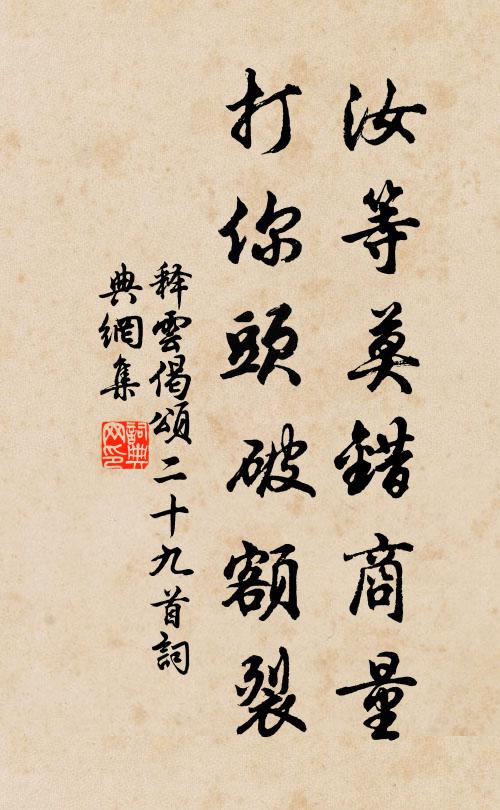 汝等莫錯商量
打你頭破額裂
释雲偈頌二十九首詞
典網集
詞典网印